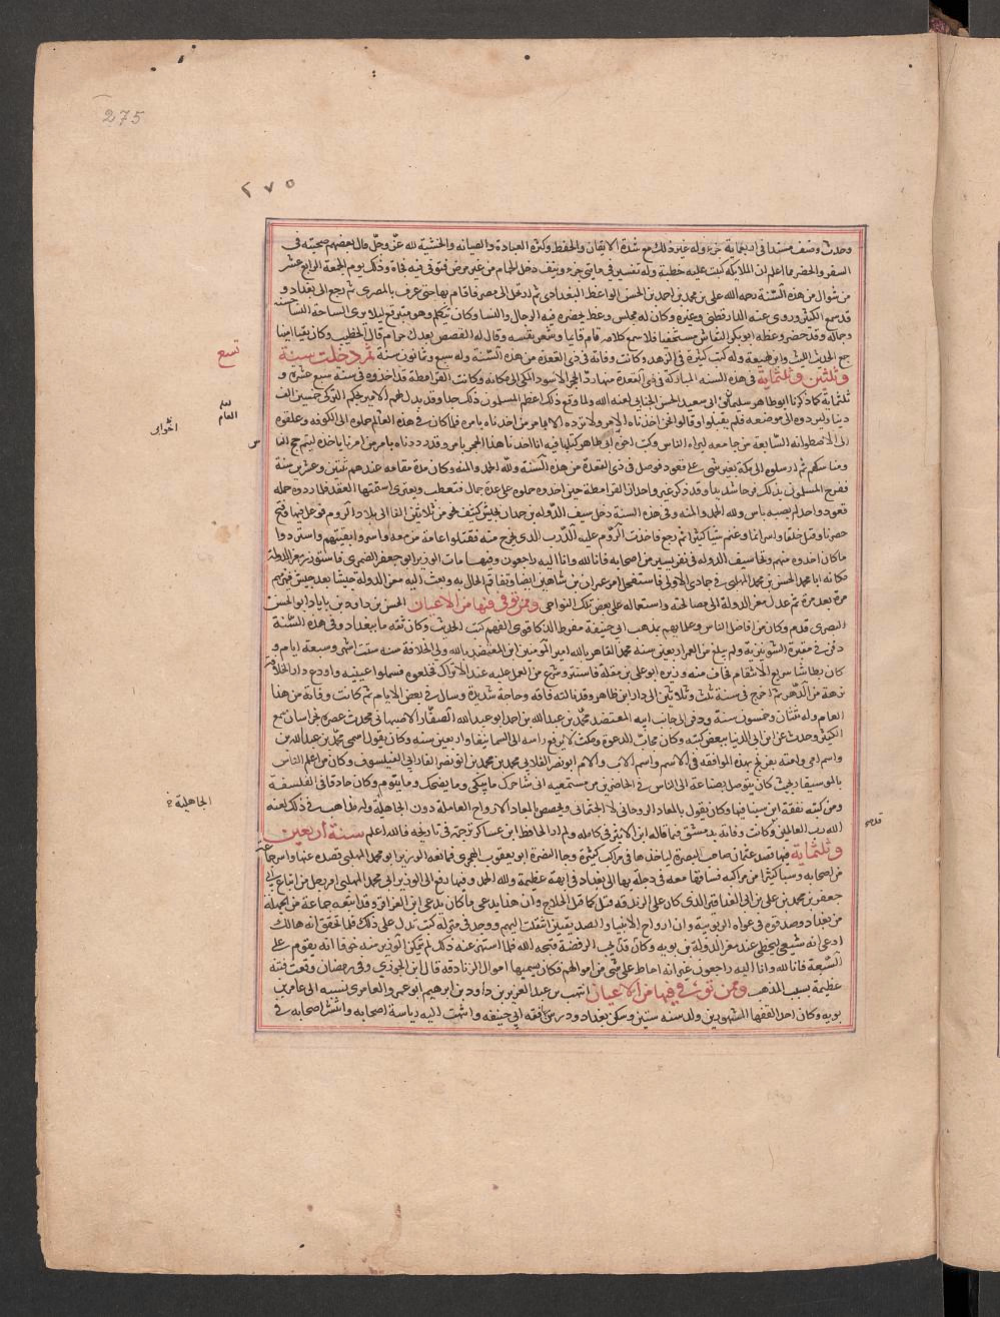 275
٢٧٥
وحدث وصنف مسندا في اربعماية جزء وله غير ذلك مع شدة الاتقان والحفظ وكثرة العبادة والصيانه والخشية لله عز وجل قال بعضهم صحبته في
السفر والحضر فما اعلم ان الملايكة كتبت عليه خطية وله تفسير في مايتي جزء ونيف دخل الحمام من غير مرض فتوفي فيه فجاة وذلك يوم الجمعة الرابع عشر
من شوال من هذه السنة رحمه الله علي بن محمد بن احمد بن الحسن ابو الواعظ البغدادي ثم ارتحل الى مصر فاقام بها حتى عرف بالمصري ثم رجع الى بغداد و
قد سمع الكثير وروى عنه الدارقطني وغيره وكان له مجلس وعظ يحضره فيه الرجال والنسا وكان يتكلم وهو متبرقع ليلا يرى النسا حسنه
وجماله وقد حضر وعظه ابو بكر النقاش مستخفيا فلما سمع كلامه قام قايما وشهر نفسه وقال له القصص بعدك حرام قال الخطيب وكان ثقة امينا
جمع الحديث الليث وابن لهيعة وله كتب كثيرة في الزهد وكانت وفاته في ذي القعدة من هذه السنة وله سبع وثمانون سنة ثم دخلت سنة
تسع
وثلثين وثلثماية في هذه السنه المباركة في ذي القعدة منها رد الحجر الاسود المكي الى مكانه وكانت القرامطة قد اخذوه في سنة سبع عشرة و
ثلثماية كما ذكرنا ابو طاهر سليمان بن ابي سعيد الحسن الجنابي لعنه الله ولما وقع ذلك اعظم المسلمون ذلك جدا وقد بذل لهم الامير بجكم التركي خمسين الف
دينار ليردوه الى موضعه فلم يقبلوا وقالوا نحن اخذناه بالامر ولا نرده الا بامر من اخذناه بامره فلما كان في هذه العالم حملوه الى الكوفه وعلقوه
لعله العام
اخو ابي
على الاسطوانه السابعة من جامعه ليراه الناس وكتب اخو ابو طاهر كتابا فيه انا اخذنا هذا الحجر بامر وقد رددناه بامر من امرنا باخذه ليتم حج الناس
ومناسكهم ثم ارسلوه الى مكة بغير شي على قعود فوصل في ذي القعدة من هذه السنة ولله الحمد والمنه وكان مدة مقامه عندهم ثنتين وعشرين سنة
ففرح المسلمون بذلك فرحا شديدا وقد ذكر غير واحد ان القرامطة حين اخذوه حملوه على عدة جمال فتعطب ويعتري اسنمتها العقر فلما ردوه حمله
قعود واحد لم يصبه باس ولله الحمد والمنه وفي هذه السنة دخل سيف الدولة بن حمدان بجيش كثيف نحو من ثلاثين الفا الى بلاد الروم فوغل فيها وفتح
حصونا وقتل خلقا واسر امما وغنم شيا كثيرا ثم رجع فاخذت الروم عليه الدرب الذي يخرج منه فقتلوا عامة من معه واسروا بقيتهم واستردوا
ما كان اخذوه منهم ونجا سيف الدوله في نفر يسير من اصحابه فانا لله وانا اليه راجعون وفيها مات الوزير ابو جعفر الضميري فاستوزر معز الدولة
مكانه ابا محمد الحسن بن محمد المهلبي في جمادى الاولى فاستفحل امر عمران بن شاهين ايضا وتفاقم الحال به وبعث اليه معز الدولة جيشا بعد جيش فيهزمهم
مرة بعد مرة ثم عدل معز الدولة الى مصالحته واستعماله على بعض تلك النواحي وممن توفي فيها من الاعيان الحسن بن داود بن باباد ابو الحسن
البصري قدم وكان من افاضل الناس وعلمايهم بمذهب ابي حنيفة مفرط الذكا قوي الفهم كتب الحديث وكان ثقه مات ببغداد وفي هذه السنة
دفن في مقبرة الشونيزية ولم يبلغ من العمر اربعين سنه محمد القاهر بالله امير المومنين ابن المعتضد بالله ولي الخلافة سنه ست اشهر وسبعة ايام و
كان بطاشا سريع الانتقام فخاف منه وزيره ابو علي بن مقلة فاستتر وشرع من العمل عليه عند الاتراك فخلعوه فسملوا عينيه واودع دار الخلافة
برهة من الدهر ثم اخرج في سنة ثلث وثلاثين الى دار ابن طاهر وقد نالته فاقه وحاجة شديدة وسال في بعض الايام ثم كانت وفاته من هذا
العام وله ثنتان وخمسون سنة ودفن الى جانب ابيه المعتضد محمد بن عبدالله بن احمد ابو عبد الله الصفار الاصبهاني محدث عصره بخراسان سمع
الكثير وحدث عن ابن ابي الدنيا ببعض كتبه وكان مجاب الدعوة ومكث لا يرفع راسه الى السما نيفا واربعين سنه وكان يقول اسمي محمد بن عبد الله بن
واسم امي وامنه يفرح بهذه الموافقه في الاسم واسم الاب والام ابو نصر الفارابي محمد بن محمد ابو نصر الفارابي الفيلسوف وكان من اعلم الناس
بالموسيقا بحيث كان يتوصل بصناعة الى الناس في الحاضرين من مستمعيه ان شا حرك ما يبكي وما يضحك وما ينوم وكان حاذقا في الفلسفة
ومن كتبه تفقه ابن سينا فيها وكان يقول بالمعاد الروحاني لا الجثماني ويخصص بالمعاد الارواح العاملة دون الجاهلة وله مذاهب في ذلك لعنه
الجاهلية ؟
الله رب العالمين وكانت وفاته بدمشق فيما قاله ابن الاثير في كامله ولم ار الحافظ ابن عساكر ترجمه في تاريخه فالله اعلم سنة اربعين
وثلثماية فيها قصد عمان صاحب البصرة لياخذها في مراكب كثيرة وجا لنصرة ابو يعقوب الهجري فمانعه الوزير ابو محمد المهلبي فصده عنها واسر جماعة
من اصحابه وسبا كثيرا من مراكبه فساقها معه في دجلة بها الى بغداد في ابهة عظيمة ولله الحمد وفيها رفع الى الوزير ابي محمد المهلبي امر رجل من اتباع ابي
جعفر بن محمد بن علي بن ابي العذاقر الذي كان على الزندقه قتل كما قتل الحلاج وان هذا يدعي ما كان يدعي ابن العزاقر وقد اتبعه جماعة من الجهلة
من بغداد وصدقوه في دعواه الربوبية وان ارواح الانبيا والصديقين انتقلت اليهم ووجد في منزله كتب تدل على ذلك فلما تحقق انه هالك
ادعى انه شيعي ليحظى عند معز الدولة بن بويه وكان قد يحب الرفضة قبحه الله فلما اشتهر عنه ذلك لم يتمكن الوزير منه خوفا انه يقوم على
الشيعة فانا لله وانا اليه راجعون غير انه احاط على شي من اموالهم فكان يسميها اموال الزنادقه قال ابن الجوزي وفي رمضان وقعت فتنة
عظيمة بسبب المذهب وممن توفي فيها من الاعيان اشهب بن عبد العزيز بن داود بن ابرهيم ابو عمرو العامري نسبه الى عامر بن
بويه وكان احد الفقها المشهورين ولد سنه ستين وسكن بغداد ودرس فقه ابي حنيفه وانتهت اليه رياسة اصحابه وانتشر اصحابه في